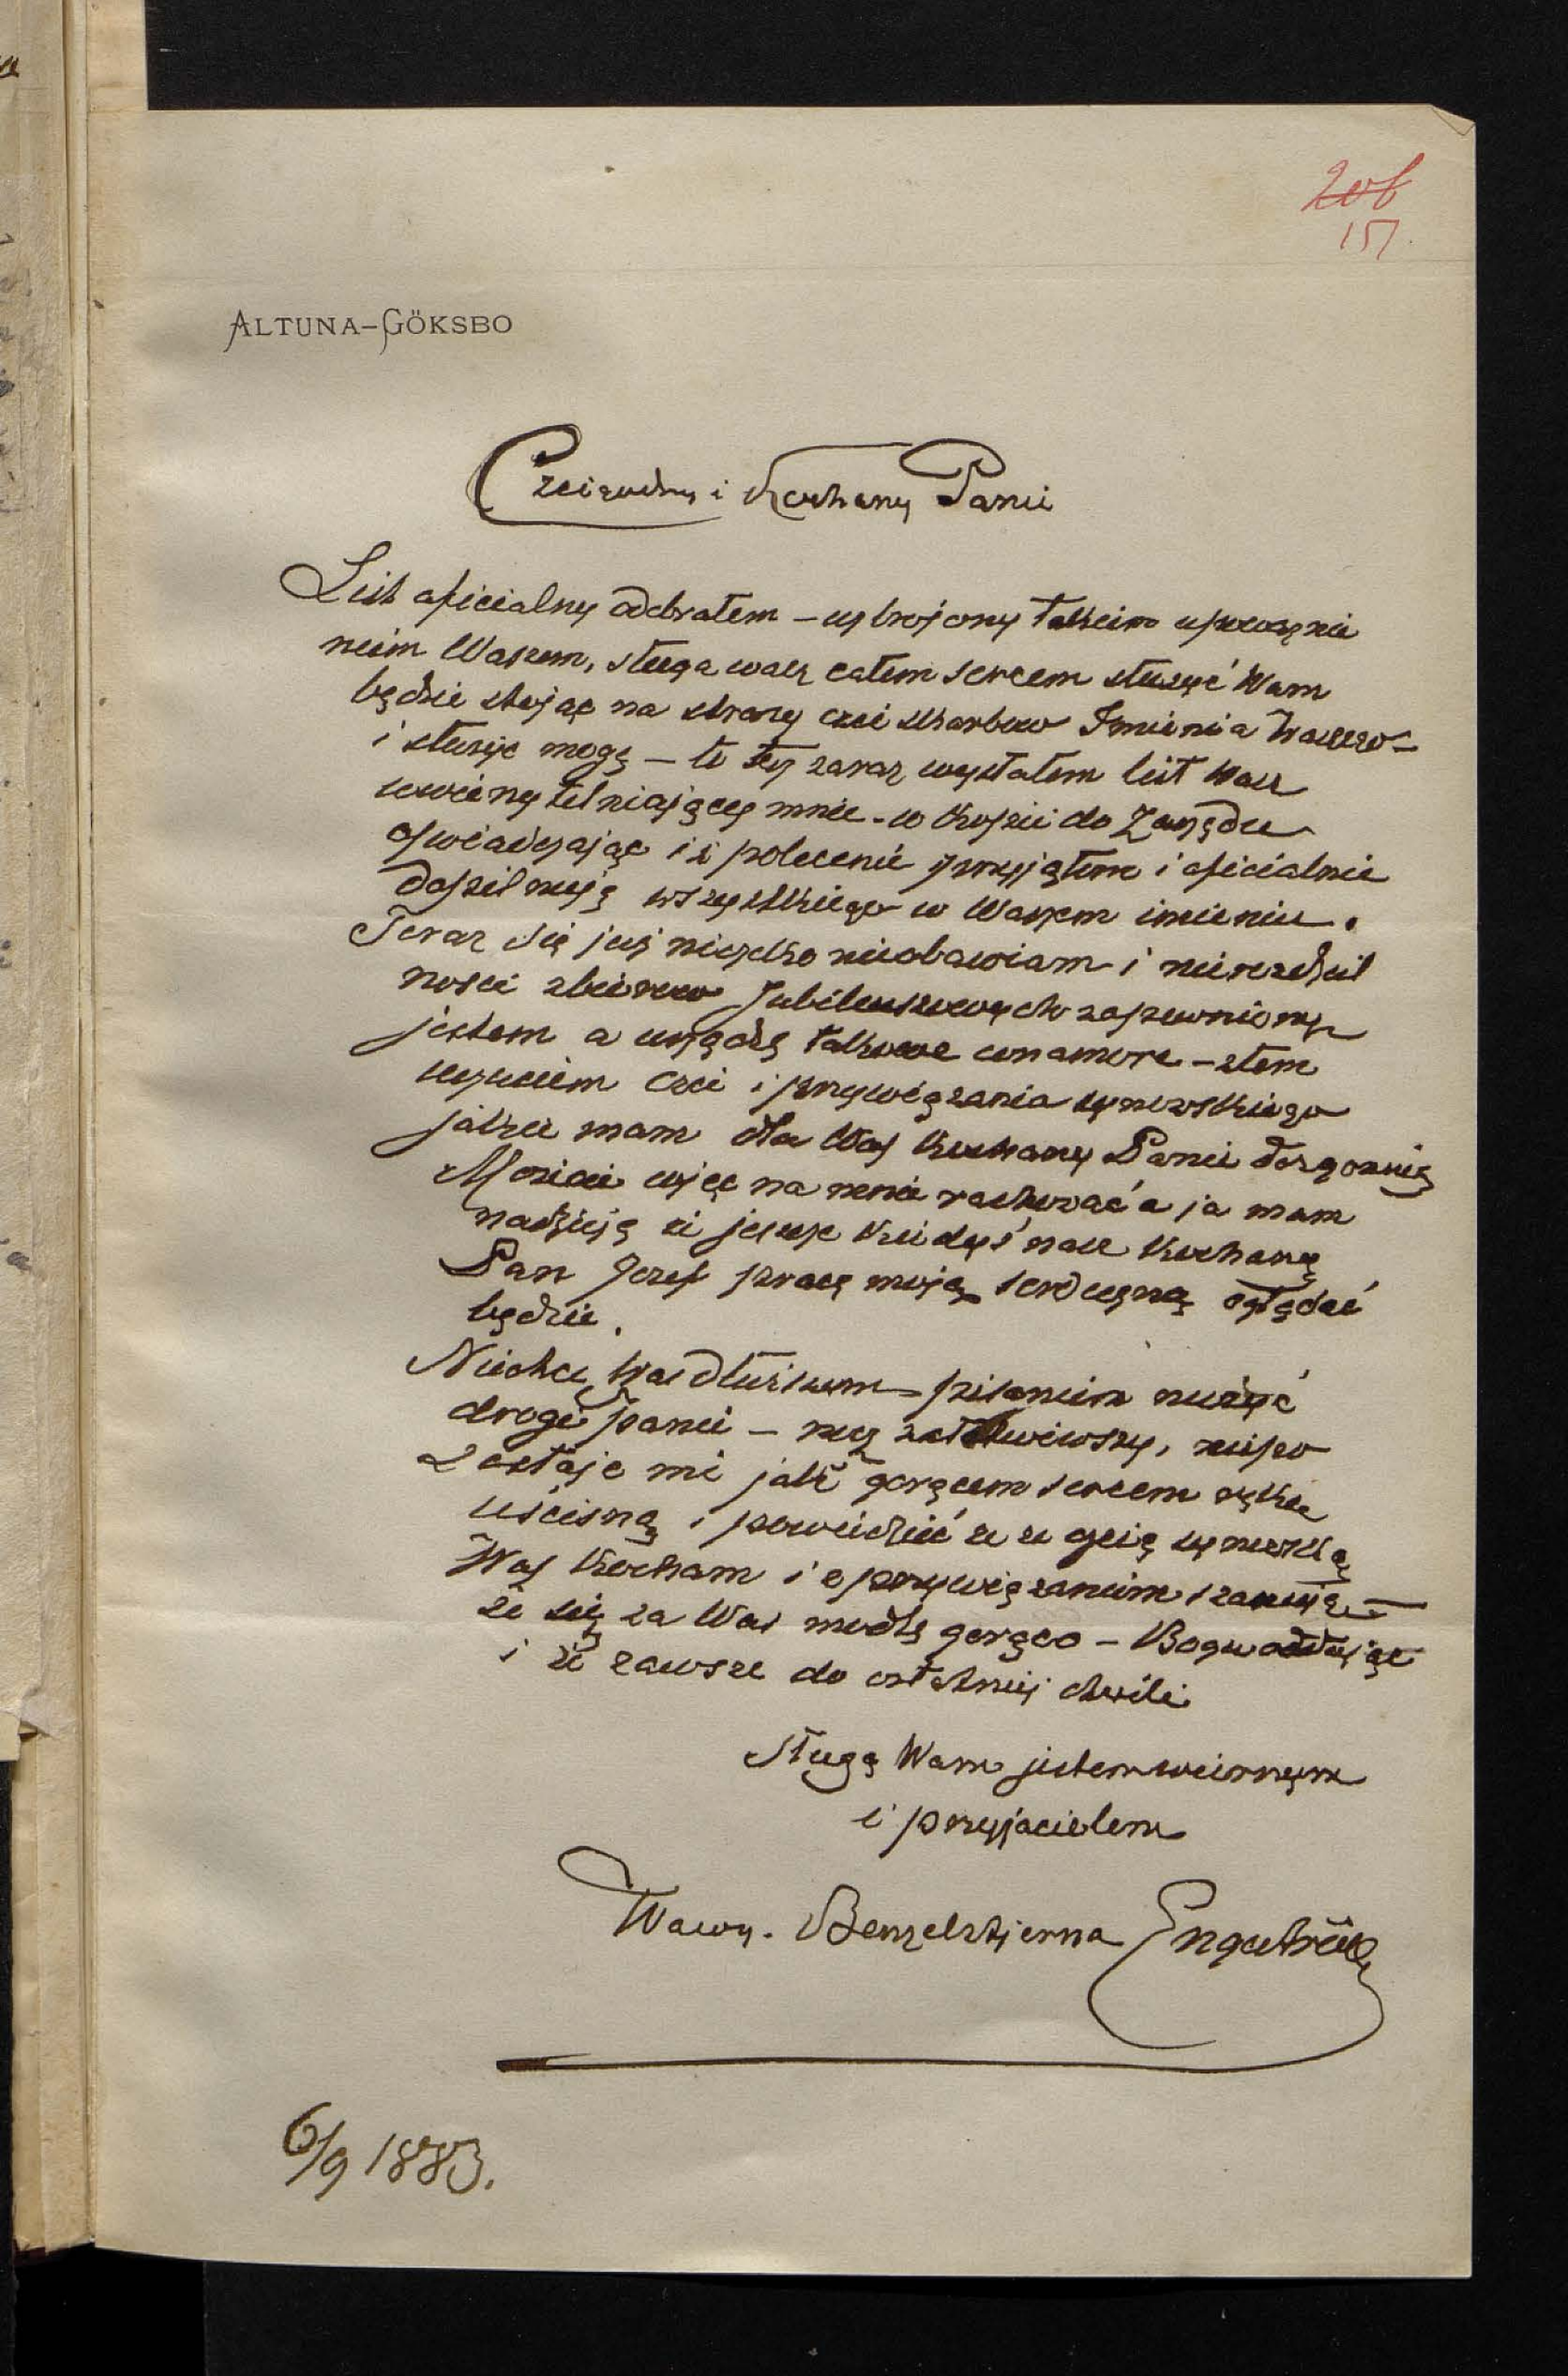 206
157
ALTUNA-GÖKSBO
Czcigodny i Kochany Panie
List oficialny odebrałem – uzbrojony takiem upoważnie
niem Waszem, sługa wasz całem sercem służyć Wam
będzie stojąc na straży czci skarbow Imienia Waszego –
i służyć mogę – to też zaraz wysłałem list Wasz
uwierzytelniający mnie – w kopii do Zarządu
oświadczając iż polecenie przyjąłem i oficialnie
dopilnuję wszystkiego w Waszem imieniu.
Teraz się już niczeko nieobawiam i nierozdziel
nosci zbiorow Jubileuszowych zapewniony
jestem a urządzę takowe con amore – z tem
uczuciem czci i przywiązania synowskiego
jakie mam dla Was Kochany Panie dozgonnie
Możecie więc na mnie rachować a ja mam
nadzieję że jeszcze kiedyś nasz Kochany
Pan Jozef pracę moją serdeczną oglądać
będzie.
Niechcę Was dłuższem pisaniem nużyć
drogi panie – rzecz załatwiwszy, niepo
zostaje mi jak gorącem sercem rękę
uścisnąć i powiedzieć że ze czcią synowską
Was Kocham i z przywiązaniem szanuję –
że się za Was modlę gorąco – Bogu oddając
i że zawsze do ostatniej chwili
sługą Wam jestem wiernym
i przyjacielem
Wawrz. Benzelstjerna Engeström
6/9 1883.